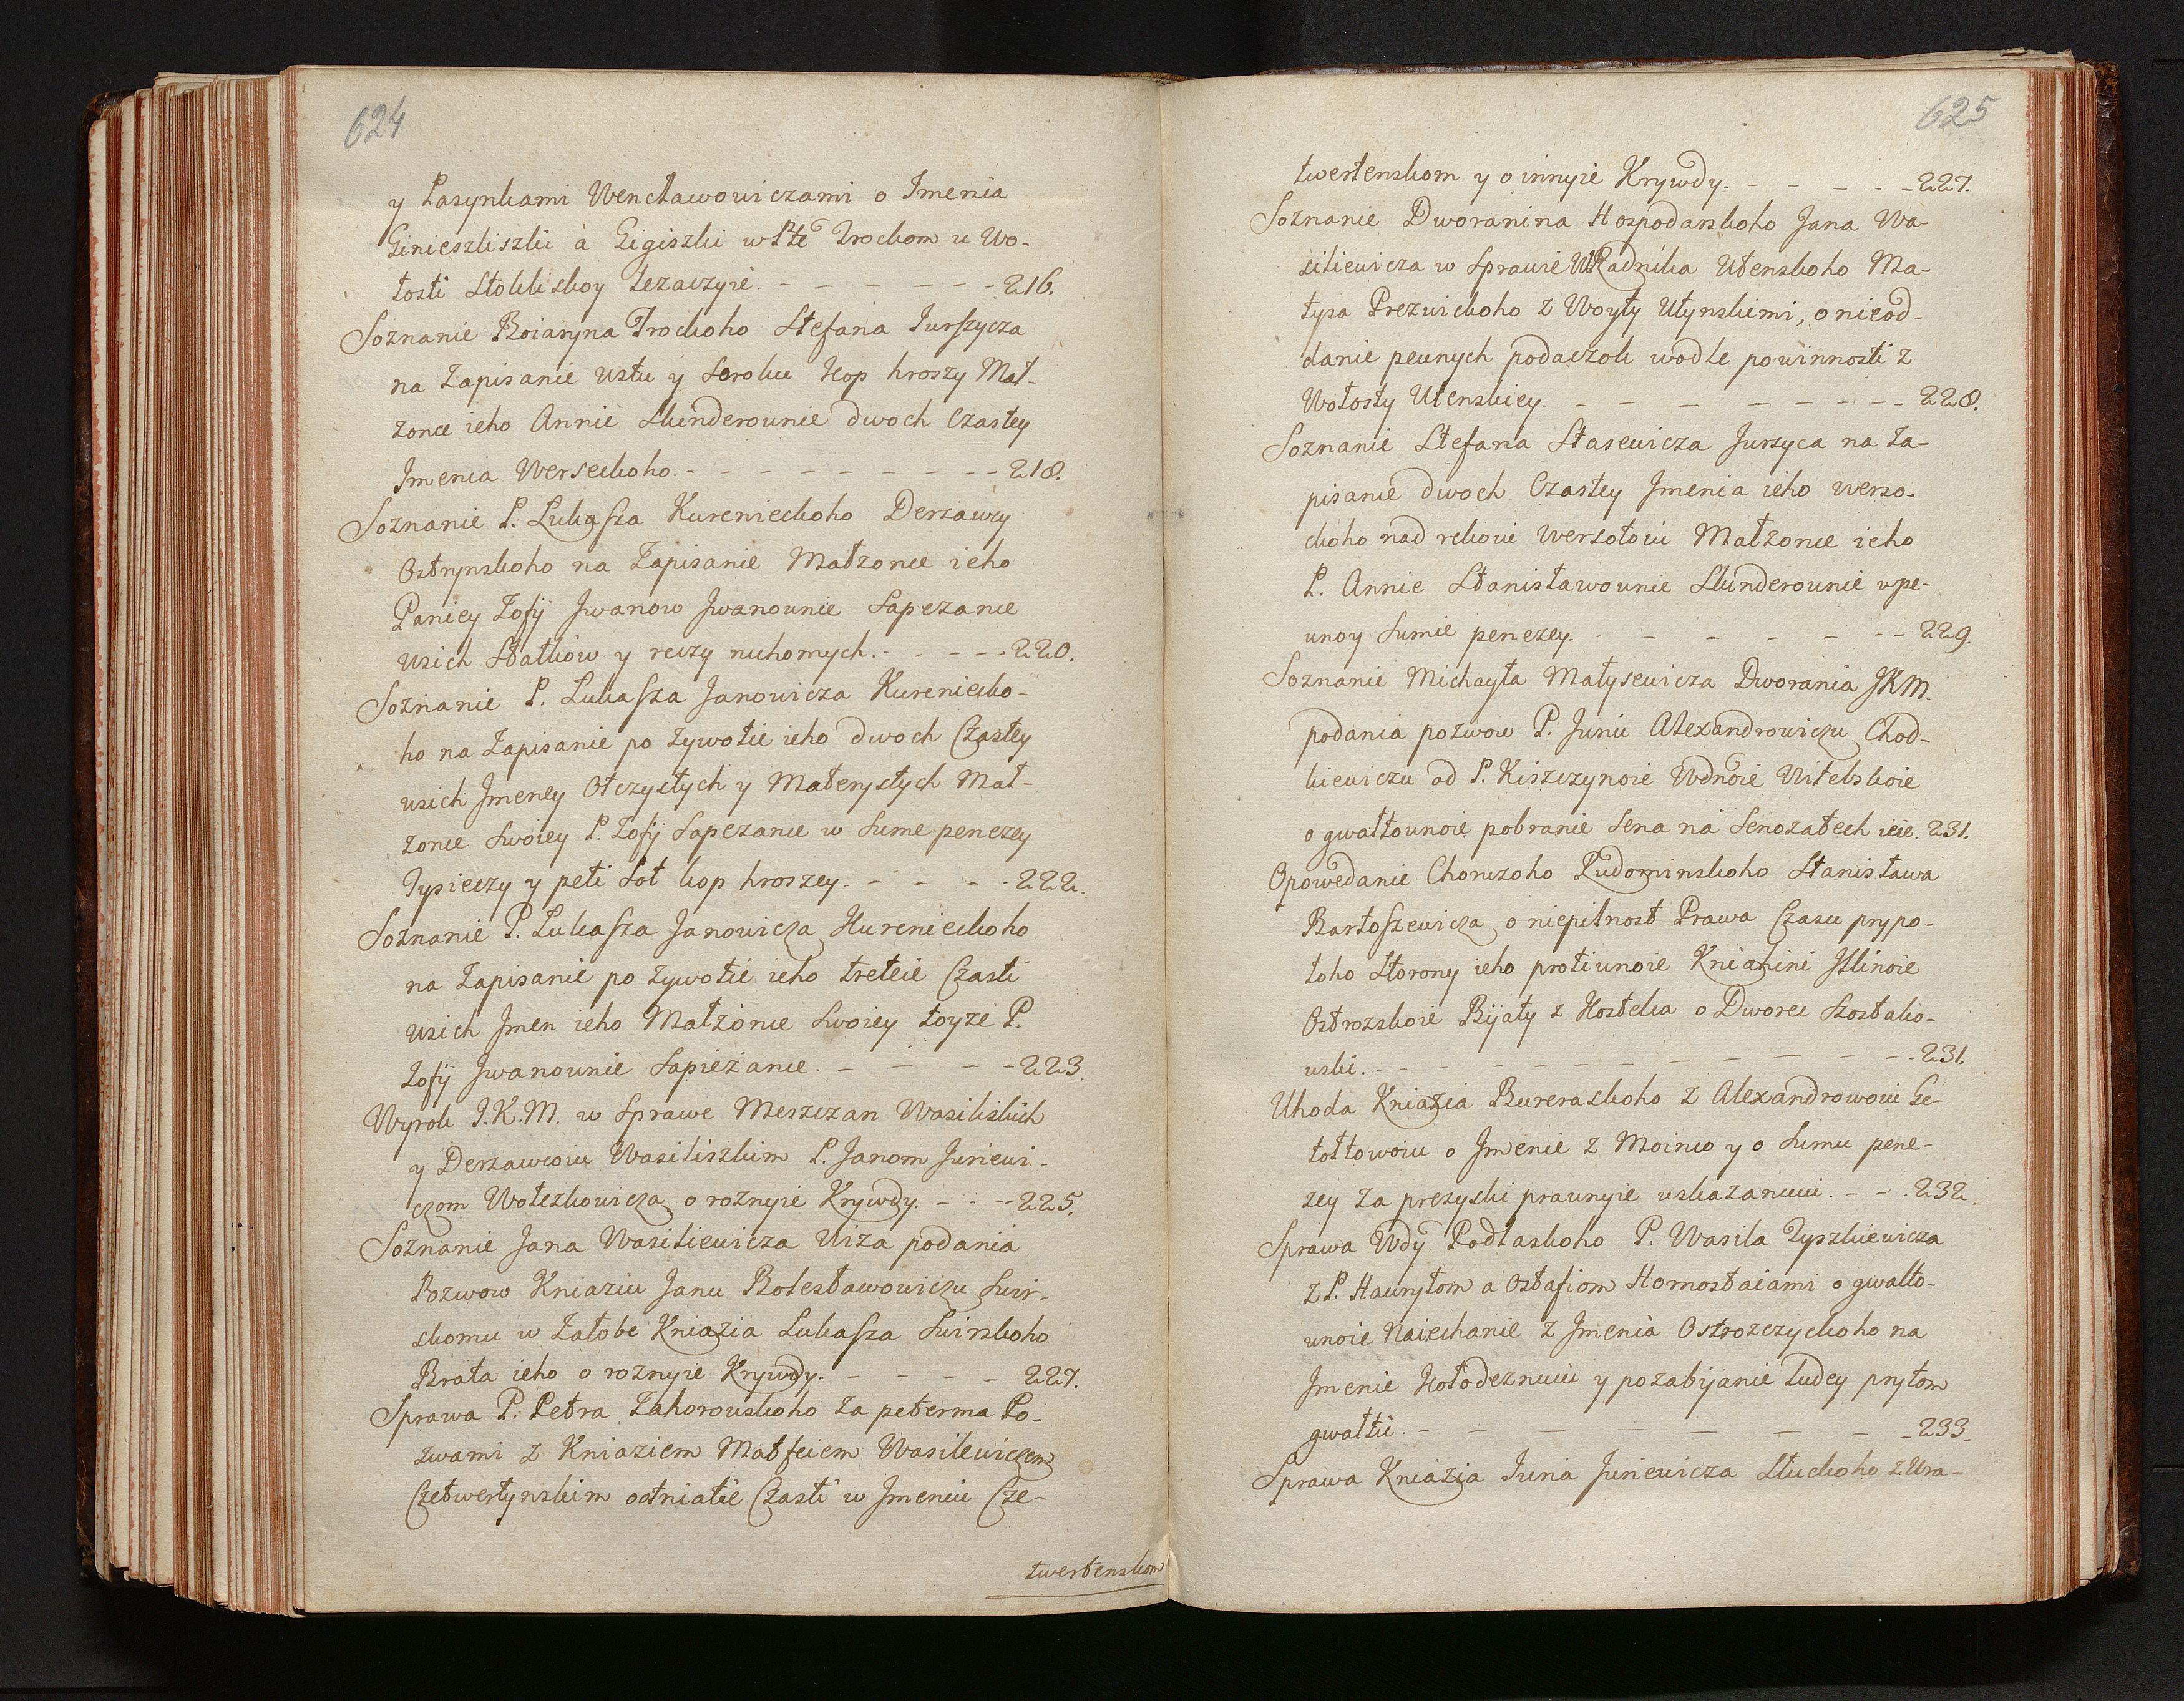 624
y Pasynkami Wencławowiczami o Imenia
Ginieszliszki à Gigiszki w Pte Trockom u Wo-
łosti Stokliskoy leżaczyie. - - - - - - - 216.
Soznanie Boiaryna Trockoho Stefana Jurszycza
na Zapisanie ustu y soroku Kop hroszy Mał-
żonce ieho Annie Skinderownie dwoch Czastey
Imenia Werseckoho. - - - - - - - - - 218.
Soznanie P. Łukasza Kurenieckoho Derzawcy
Ostrynskoho na Zapisanie Małżonce ieho
Paniey Zofij Iwanow Iwanownie Sapezance
usich Statkow y reczy ruchomych. - - - - - 220.
Soznanie P. Łukasza Janowicza Kurenicko-
ho na Zapisanie po żywotie ieho dwoch Czastey
usich Imeney Otczystych y Materystych Mał-
żonce swoiey P. Zofij Sapezance w Sume penezey
Tysieczy y peti sot kop hroszey. - - - - 222.
Soznanie P. Łukasza Janowicza Kurenieckoho
na Zapisanie po żywotie ieho treteie Czasti
usich Imen ieho Małżonce swoiey toyże P.
Zofij Iwanownie Sapieżance. - - - - 223.
Wyrok J.K.M. w sprawe Meszczan Wasiliskich
y Derzawcoiu Wasiliszkim P. Janom Juriewi-
czom Wołczkowicza o roznyie Krywdy. - - - 225.
Soznanie Jana Wasiliewicza Wiża podania
Pozwow Kniaziu Janu Bolesławowiczu Swir-
skomu w Żałobe Kniazia Łukasza Swirskoho
Brata ieho o roznyie Krywdy. - - - - - 227.
Sprawa P. Petra Zahorowskoho za peterma Po-
zwami z Kniaziem Matfeiem Wasilewiczem
Czetwertynskim o otniatie Czasti w Imeniu Cze-
twertenskom
625
twertenskom y o innyie Krywdy. - - - - - 227.
Soznanie Dworanina Hospodarskoho Jana Wa-
siliewicza w sprawie Uradnika Utenskoho Ma-
tysa Prezwickoho z Woyty Utynskimi, o nieod-
danie pewnych podaczok wodle powinnosti z
Wołosty Utenskiey. - - - - - - - - 228.
Soznanie Stefana Stasewicza Jurzyca na Za-
pisanie dwoch Czastey Imenia ieho werso-
ckoho nad rekoiu wersokoiu Małżonce ieho
P. Annie Stanisławownie Skinderownie w pe-
wnoy Sumie penezey. - - - - - - - 229.
Soznanie Michayła Matysewicza Dworania JKM.
podania pozwow P. Juriu Alexandrowiczu Chod-
kiewiczu od P. Kiszczynoie Wdnoie Witebskoie
o gwałtownoie pobranie Sena na Senożatech ieie. 231.
Opowedanie Choruzoho Rudominskoho Stanisława
Bartoszewicza, o niepilnost Prawa Czasu prypo-
toho Storony ieho protiwnoie Kniahini Illinoie
Ostrozskoie Bijaty z Kostelca o Dworec Szostako-
wski. - - - - - - - - - - 231.
Uhoda Kniazia Burerackoho z Alexandrowoiu Ge-
tołtowoiu o Imenie z Moinco y o Sumu pene-
zey za prezyski prawnyie uskazannui. - - . 232.
Sprawa Wdy Podlaskoho P. Wasila Tyszkiewicza
z P. Hawryłom a Ostafiom Hornostaiami o gwałto-
wnoie Naiechanie z Imenia Ostrożczyckoho na
Imenie Hołodeznuiu y pozabijanie ludey prytom
gwałtie. - - - - - - - - 233.
Sprawa Kniazia Juria Juriewicza Słuckoho z Ura-